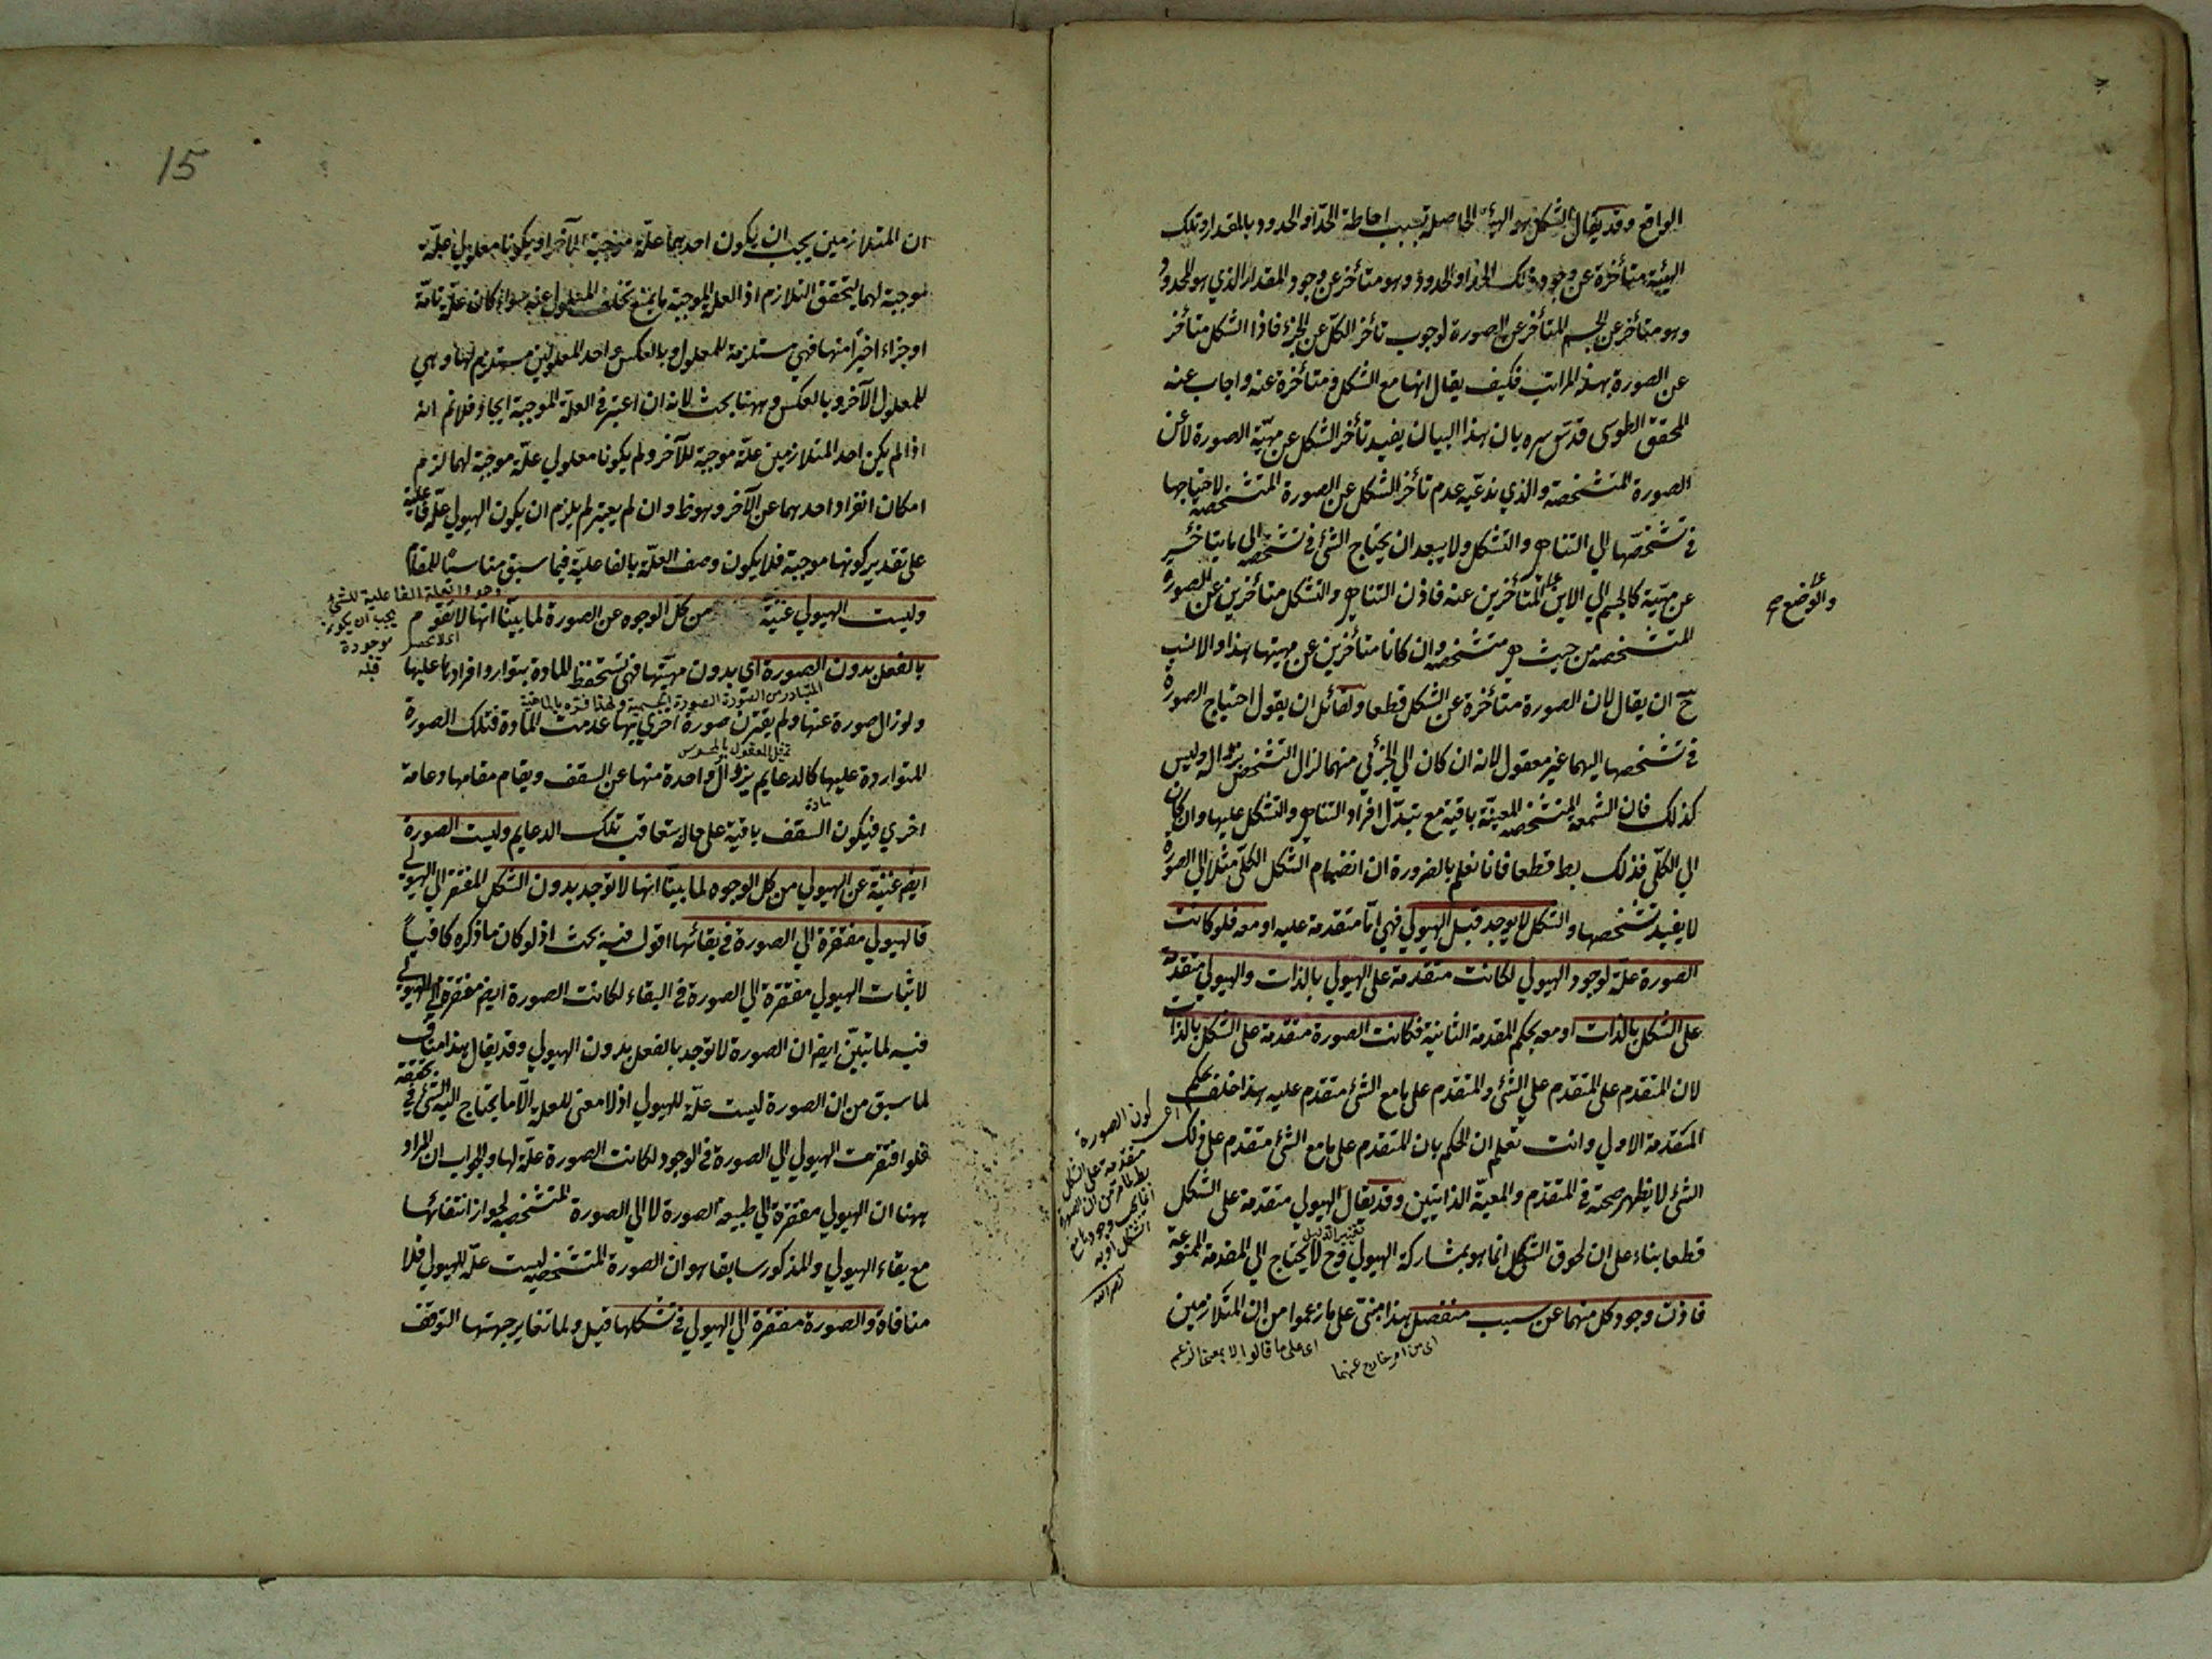 الواقع وقد يقال الشكل هو الهيئة الحاصلة بسبب احاطة الحد او الحدود بالمقدار وتلك
الهيئة متأخرة عن وجود ذلك الحد او الحدود وهو متأخر عن وجود المقدار الذي هو المحدود
وهو متأخر عن الجسم المتأخر عن الصورة لوجوب تأخر الكل عن الجزء فاذا الشكل متأخر
عن الصورة بهذه المراتب فكيف يقال انها مع الشكل او متأخرة عنه واجاب عنه
المحقق الطوسى قدس سره بان هذا البيان يفيد تأخر الشكل عن مهيّة الصورة لا عن
الصورة المتشخصة والذي ندعيه عدم تأخر الشكل عن الصورة المتشخصة لاحتياجها
في تشخصها الي التناهي والتشكل ولا يبعد ان يحتاج الشئ في تشخصه الي ما يتأخر
عن مهيّة كالجسم الي الاين المتأخرين عنه فاذن التناهي والتشكل متأخرين عن الصورة
والوضع صح
المتشخصة من حيث هي متشخصة وان كانا متأخرين عن مهيتها هذا والانسب
ح ان يقال بان الصورة متأخرة عن الشكل قطعا ولقائل ان يقول احتياج الصورة
في تشخصها اليهما غير معقول لانه ان كان الي الجزئي منهما لزال التشخص بزواله وليس
كذلك فان الشمعة المتشخصة المعينة باقية مع تبدل افراد التناهي والتشكل عليها وان كان
الي الكلّي فذلك بط قطعا فانا نعلم بالضرورة ان انضمام الشكل الكلّي مثلا الي الصورة
لا يفيد تشخصها والشكل لا يوجد قبل الهيولي فهي امّا متقدمة عليه او معه فلو كانت
الصورة علّة لوجود الهيولي لكانت متقدمة علي الهيولي بالذات والهيولي متقدمة
علي الشكل بالذات او معه بحكم المقدمة الثانية فكانت الصورة متقدمة علي الشكل بالذات
لان المتقدم علي المتقدم علي الشئ والمتقدم علي ما مع الشئ متقدم عليه هذا خلف بحكم
المقدمة الاولي وانت تعلم ان الحكم بان المتقدم علي ما مع الشئ متقدم علي ذلك
اي كون الصورة
متقدمة علي الشكل
الشئ لا يظهر صحته في المتقدم والمعيّة الذاتيتين وقد يقال الهيولي متقدمة علي الشكل
تغيير الدليل
قطعا بناء علي ان لحوق الشكل انما هو بمشاركة الهيولي وح لا يحتاج الي المقدمة الممنوعة
فاذن وجود كل منهما عن سبب منفصل هذا مبني علي ما زعموا من ان المتلازمين
اى من امر خارج عنهما
اى على ما قالوا لا بمعنى الزعم
15
ان المتلازمين يجب ان يكون احدهما علّة موجبة للآخر او يكونا معلولي علّة
موجبة لهما ليتحقق التلازم اذ العلة الموجبة ما يمتنع تخلف المعلول عنه سواء كان علّة تامّة
او جزاء اخيراً منها فهي مستلزمة للمعلول وبالعكس واحد المعلولين مستلزم لها وهي
للمعلول الآخر وبالعكس وههنا بحث لانه ان اعتبر في العلّة الموجبة ايجاد فلانم انه
اذا لم يكن احد المتلازمين علّة موجبة للآخر ولم يكونا معلولي علّة موجبة لهما لزم
امكان انفراد احدهما عن الآخر وهو ظ وان لم يعتبر لم يلزم ان يكون الهيولي علّة فاعلية
علي تقدير كونها موجبة فلا يكون وصف العلّة بالفاعليّة فيما سبق مناسبا للمقام
والعلة الفاعلية للشئ
يجب ان يكون
موجودة
قبله
وليست الهيولي غنيّة من كل الوجوه عن الصورة لما بيّنا انها لا تقوم
بالفعل بدون الصورة اي بدون مهيّتها فهي تستحفظ المادة بتوارد افرادها عليها
المتبادر من الصورة الصورة الجسمية ولهذا فسّره بالماهية
ولو زال صورة عنها ولم يقترن صورة اخري بها عدمت المادة فتلك الصورة
تمثيل المعقول بالمحسوس
المتواردة عليها كالدعايم يزول واحدة منها عن السقف ويقام مقامها دعامة
اخري فيكون السقف باقية علي حاله بتعاقب تلك الدعايم وليست الصورة
ايضا غنيّة عن الهيولي من كل الوجوه لما بيّنا انها لا توجد بدون الشكل المفتقر الي الهيولي
فالهيولي مفتقرة الي الصورة في بقائها اقول فيه بحث اذ لو كان ما ذكره كافياً
لاثبات الهيولي مفتقرة الي الصورة في البقاء لكانت الصورة ايضا مفتقرة الي الهيولي
فيه لما تبيّن ايضا ان الصورة لا توجد بالفعل بدون الهيولي وقد يقال هذا مناف
لما سبق من ان الصورة ليست علّة للهيولي اذ لا معني للعلة الّا ما يحتاج اليه الشئ في تحققه
فلو افتقرت الهيولي الي الصورة في الوجود لكانت الصورة علّة لها والجواب ان المراد
ههنا ان الهيولي مفتقرة الي طبيعة الصورة لا الي الصورة المتشخصة لجواز انتفائها
مع بقاء الهيولي والمذكور سابقا هو ان الصورة المتشخصة ليست علّة للهيولي فلا
منافاة والصورة مفتقرة الي الهيولي في تشكلها قيل ولما تغاير جهتها التوقف